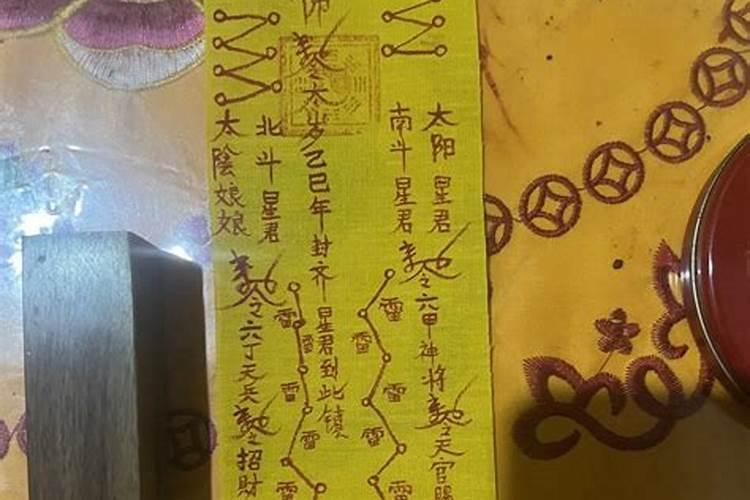 太阳星君
南斗星君
敕令六甲神将敕令天官賜
雷
雷
雷
雷
雷
師敕令太岁己巳年封齐星君到此鎮
北斗星君
太陰娘娘
雷
雷
雷
雷
雷
敕令六丁天兵敕令招財